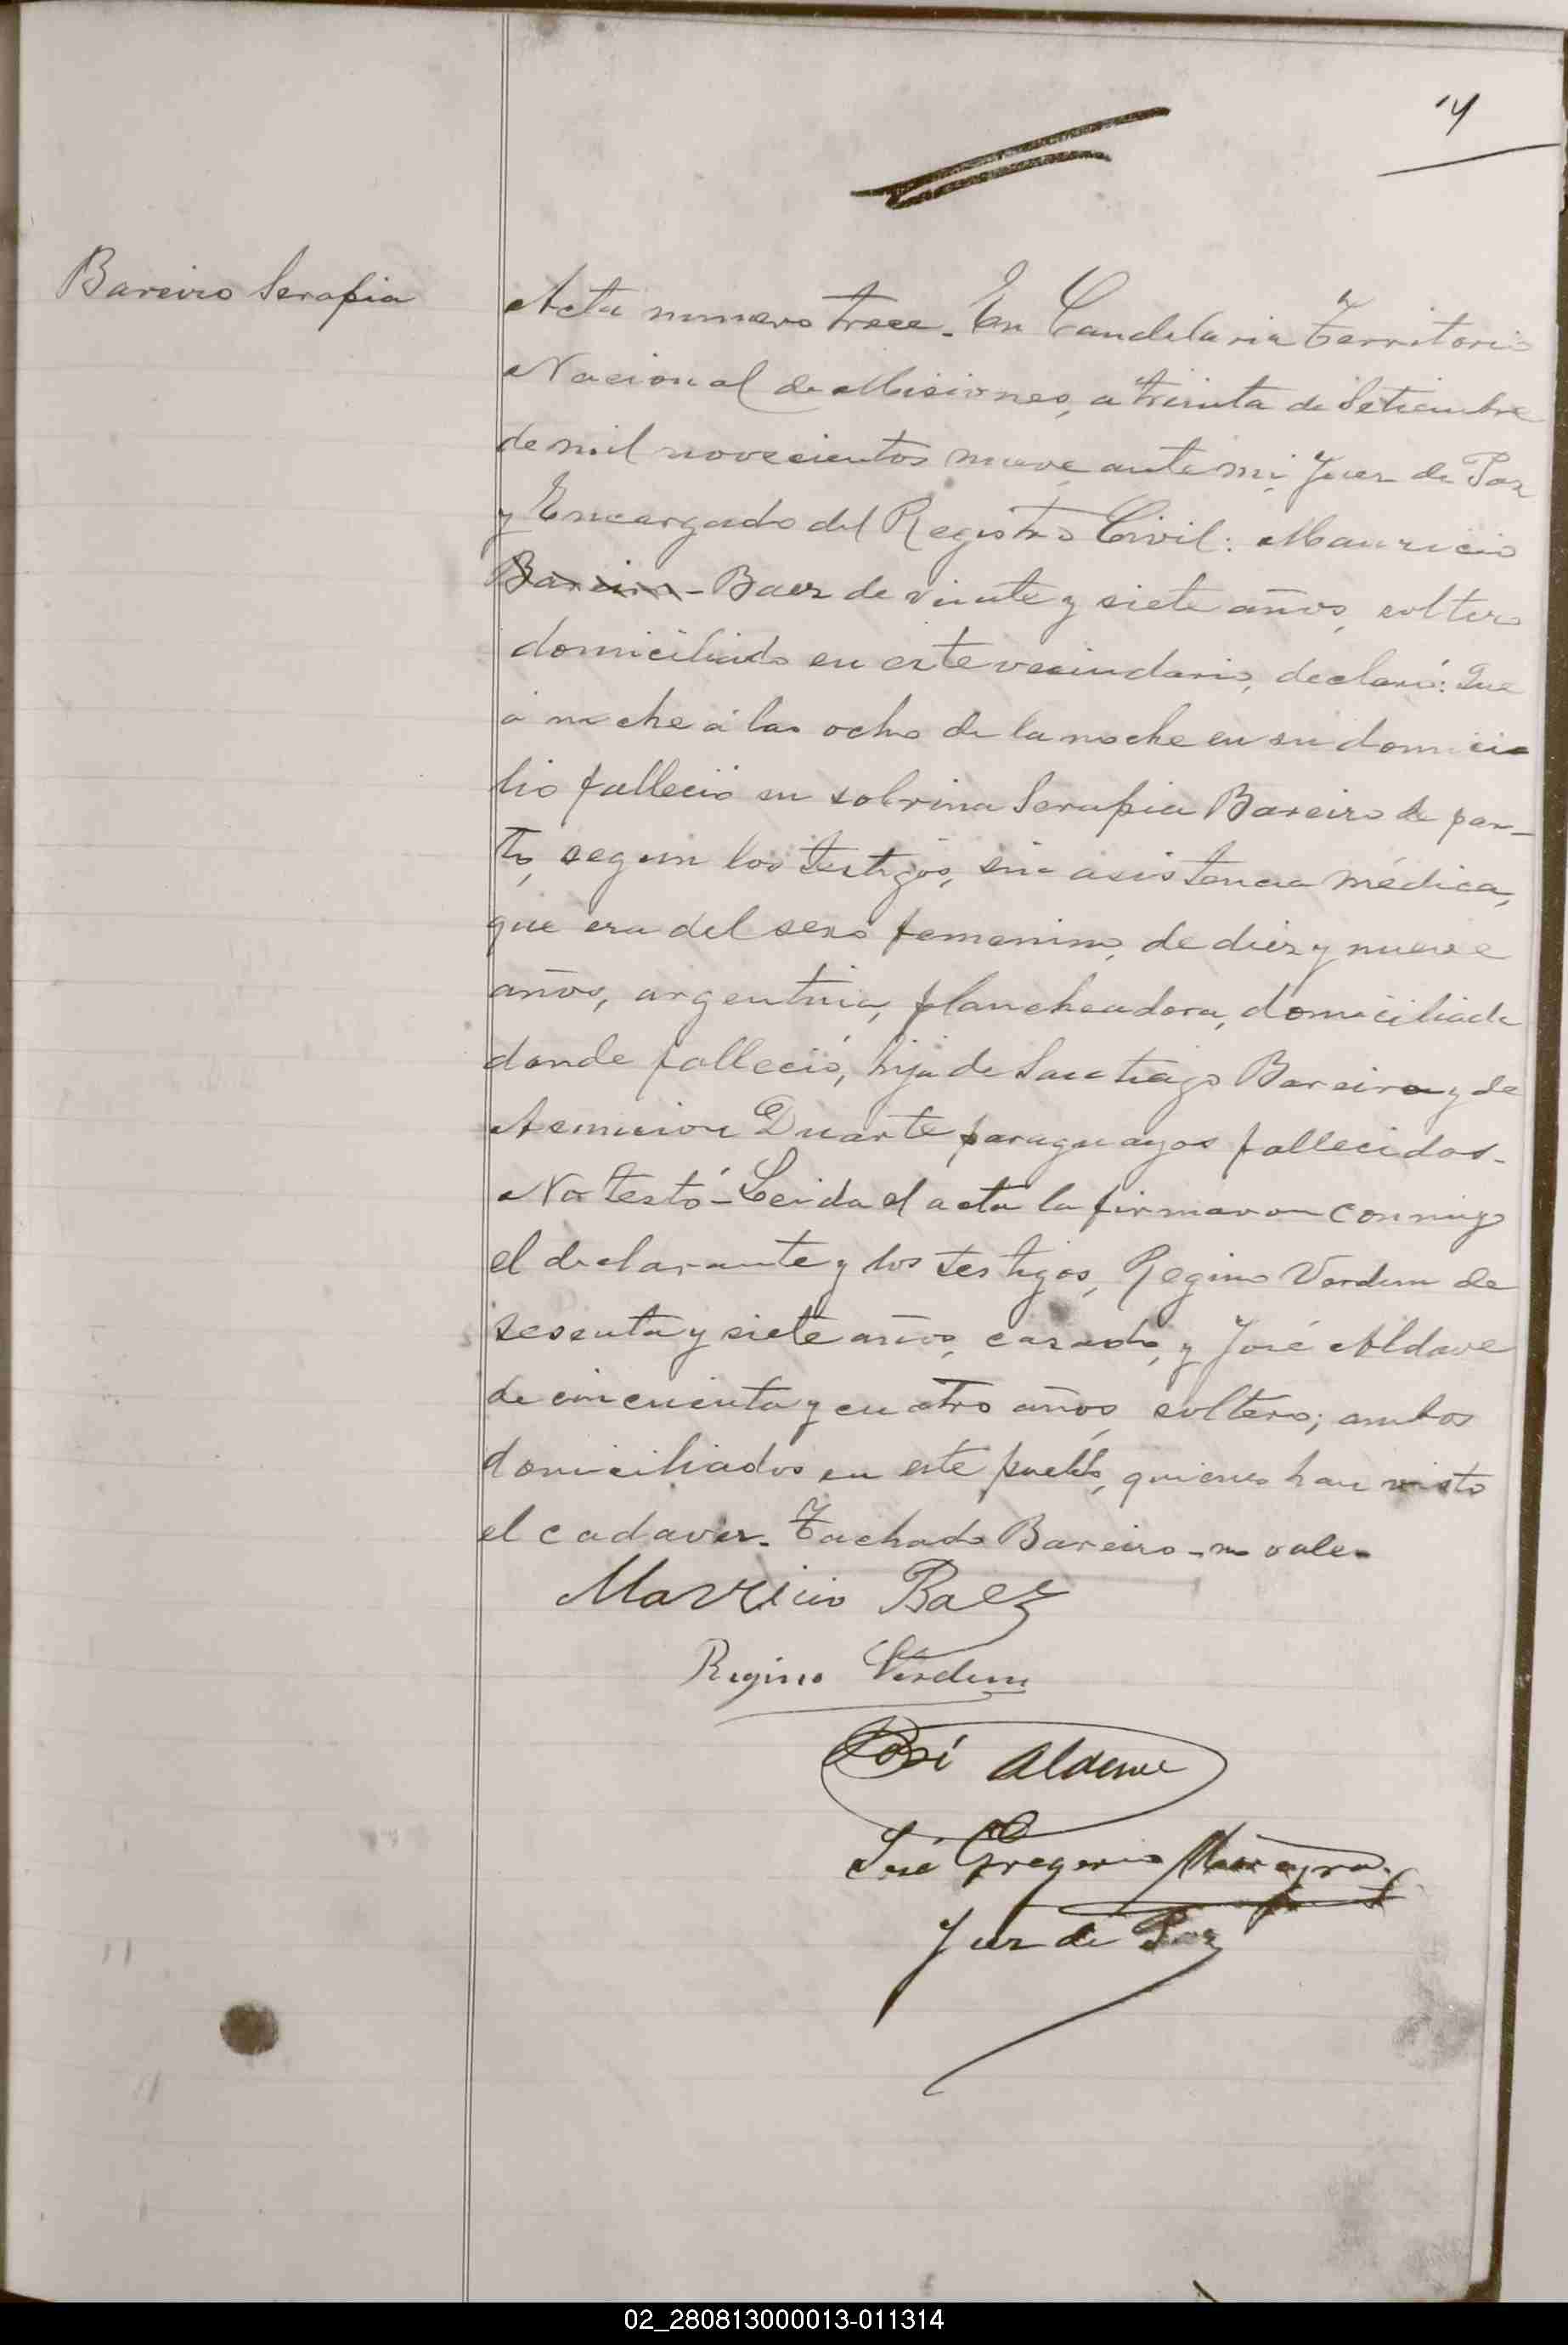 14
Bareiro Serapia
Acta numero trece. En Candelaria Territorio
Nacional de Misiones, a treinta de Setiembre
de mil novecientos nueve ante mi, Juez de Paz
y Encargado del Registro Civil: Mauricio
Bareiro - Baez de veinte y siete años, soltero
domiciliado en este vecindario, declaró: Que
a noche á las ocho de la noche en su domici
lio falleció su sobrina Serapia Bareiro de par-
to, segun los testigos, sin asistencia médica,
que era del sexo femenino, de diez y nueve
años, argentina, plancheadora, domiciliada
donde falleció, hija de Santiago Bareiro y de
Asuncion Duarte paraguayos fallecidos.
No testó - Leida el acta la firmaron conmigo
el declarante y los testigos, Regino Verdun de
sesenta y siete años, casado, y José Aldave
de cincuenta y cuatro años soltero; ambos
domiciliados en este pueblo, quienes han visto
el cadaver. Tachado Bareiro - no vale.
Mauricio Baez
Regino Verdun
José Aldave
José Gregorio
Juez de Paz
02_280813000013-011314